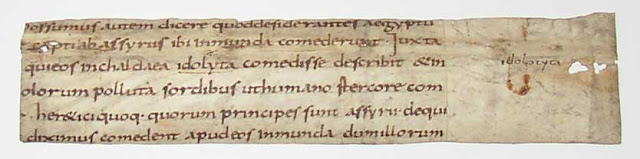 possumus autem dicere quod desiderantes aegyptu
capti ab assyriis ibi inmunda comederunt · Iuxta
quieos inchaldaea idolyta comedisse describit &in
olorum polluta sordibus uthumano stercore com
heretici quoq· quorum principes sunt assyrii· dequi
diximus comedent apudeos inmunda dumillorum
idolotyta